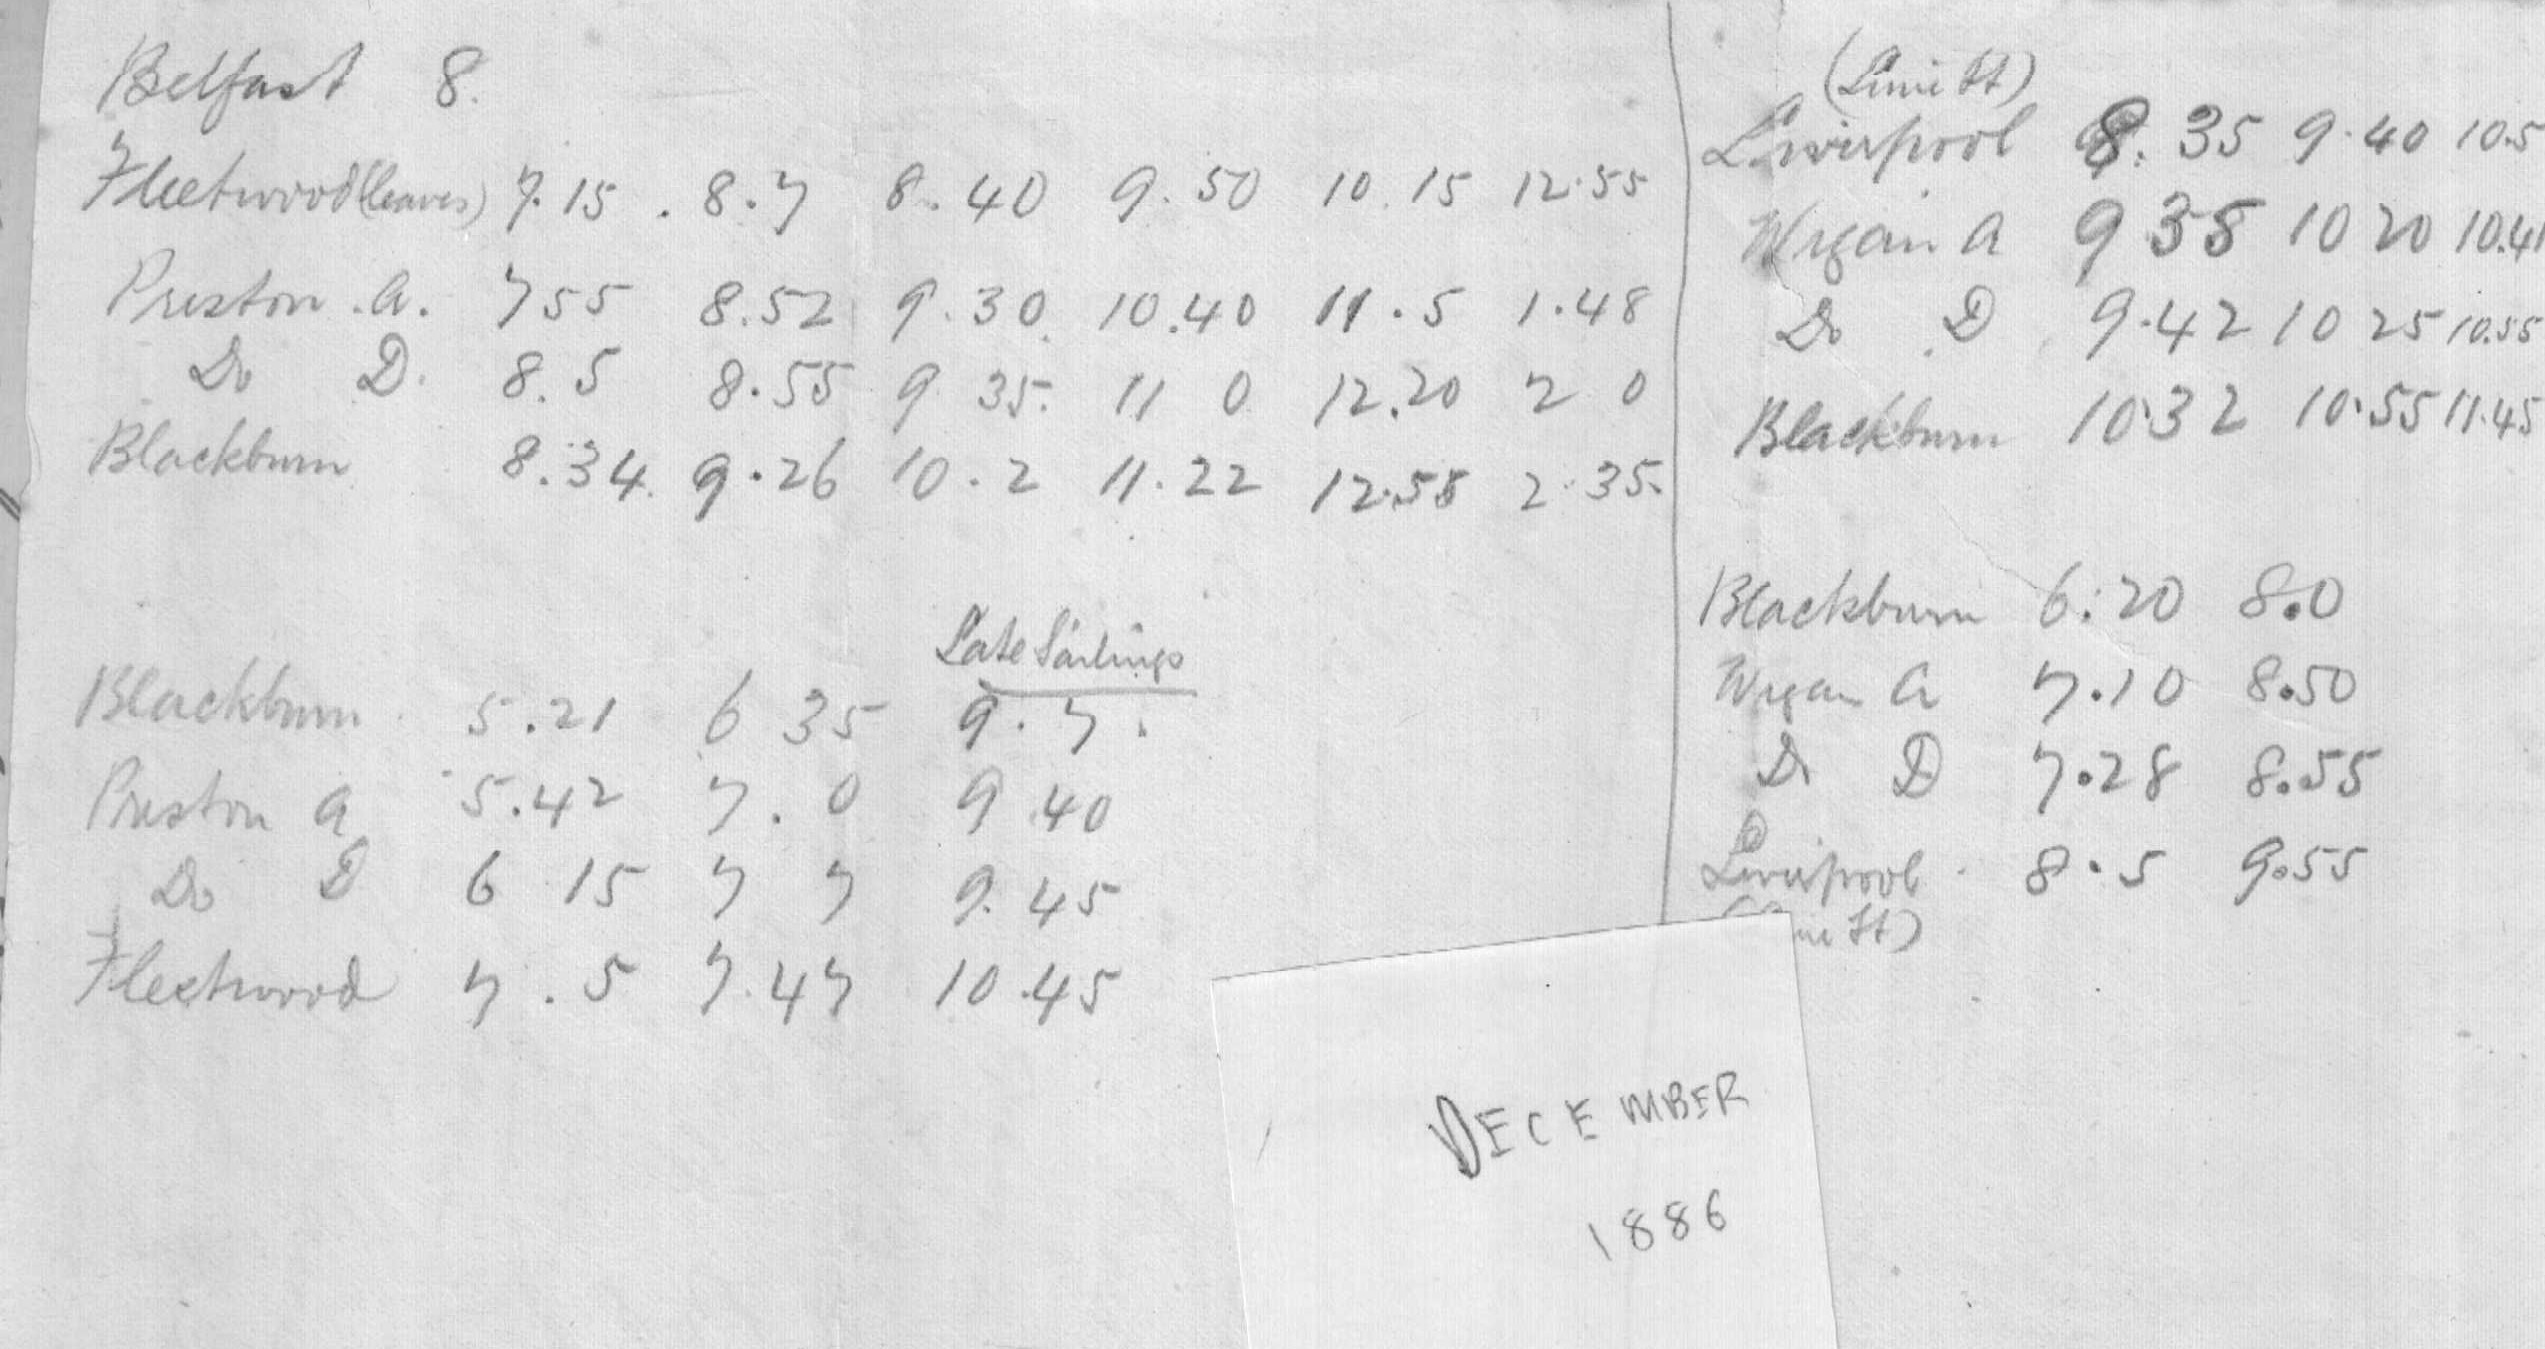 Belfast 8.
Fleetwood (leaves) 7.15 . 8.7 8.40 9.50 10.15 12.55
Preston .A. 7 55 8.52 9.30 10.40 11.5 1.48
Do D. 8.5 8.55 9 35. 11 0 12.20 2 0
Blackburn 8.34. 9.26 10.2 11.22 12.58 2.35.
Late Sailings
Blackburn 5.21 6 35 9.7.
Preston A 5.42 7.0 9 40
Do D 6 15 7 7 9.45
Fleetwood 7.5 7.47 10.45
(Lime St)
Liverpool 8.35 9.40 10.5
Wigan A 9 38 10 20 10.41
Do D 9.42 10 25 10.55
Blackburn 10.32 10.55 11.45
Blackburn 6.20 8.0
Wigan A 7.10 8.50
Do D 7.28 8.55
Liverpool 8.5 9.55
St)
DECEMBER
1886